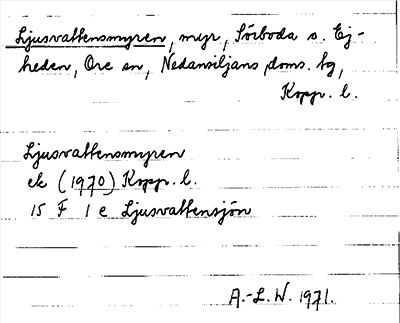 Ljusvattensmyren, myr, Sörboda o. Ej-
heden, Ore sn, Nedansiljans doms. tg,
Kopp. l.
Ljusvattensmyren
ek (1970) Kopp. l.
15 F 1 e Ljusvattensjön
A.-L. W. 1971.